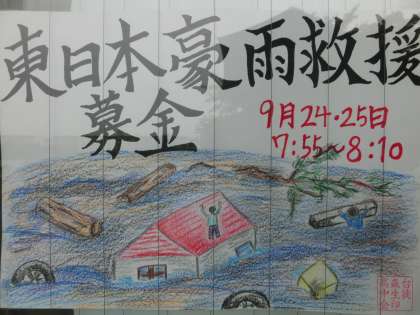 東日本豪雨救援
募金
9月24・25日
7:55～8:10